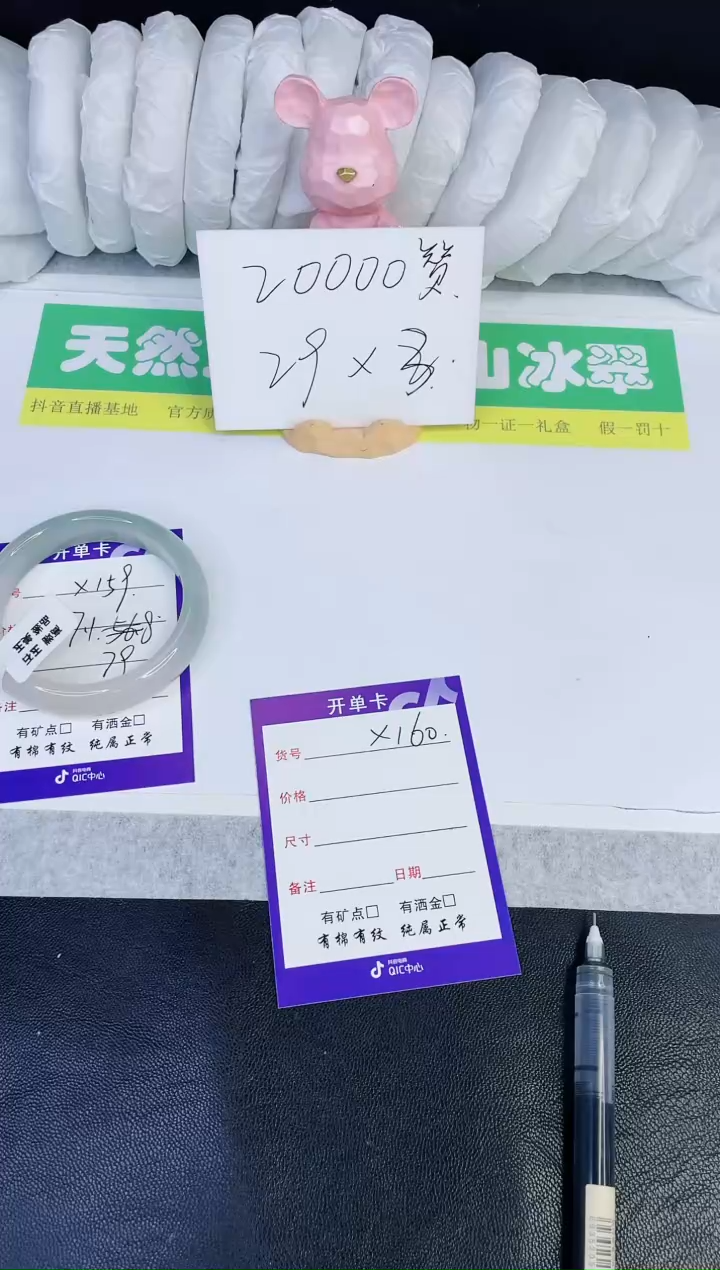 20000赞.
29×
天然
山冰翠
抖音直播基地 官方
物一证一礼盒 假一罚十
开单卡
号 ×159.
71. 568.
79
备注
有矿点□ 有洒金□
有棉有纹 纯属正常
抖音电商
QIC中心
开单卡
货号 ×160.
价格
尺寸
备注 日期
有矿点□ 有洒金□
有棉有纹 纯属正常
抖音电商
QIC中心